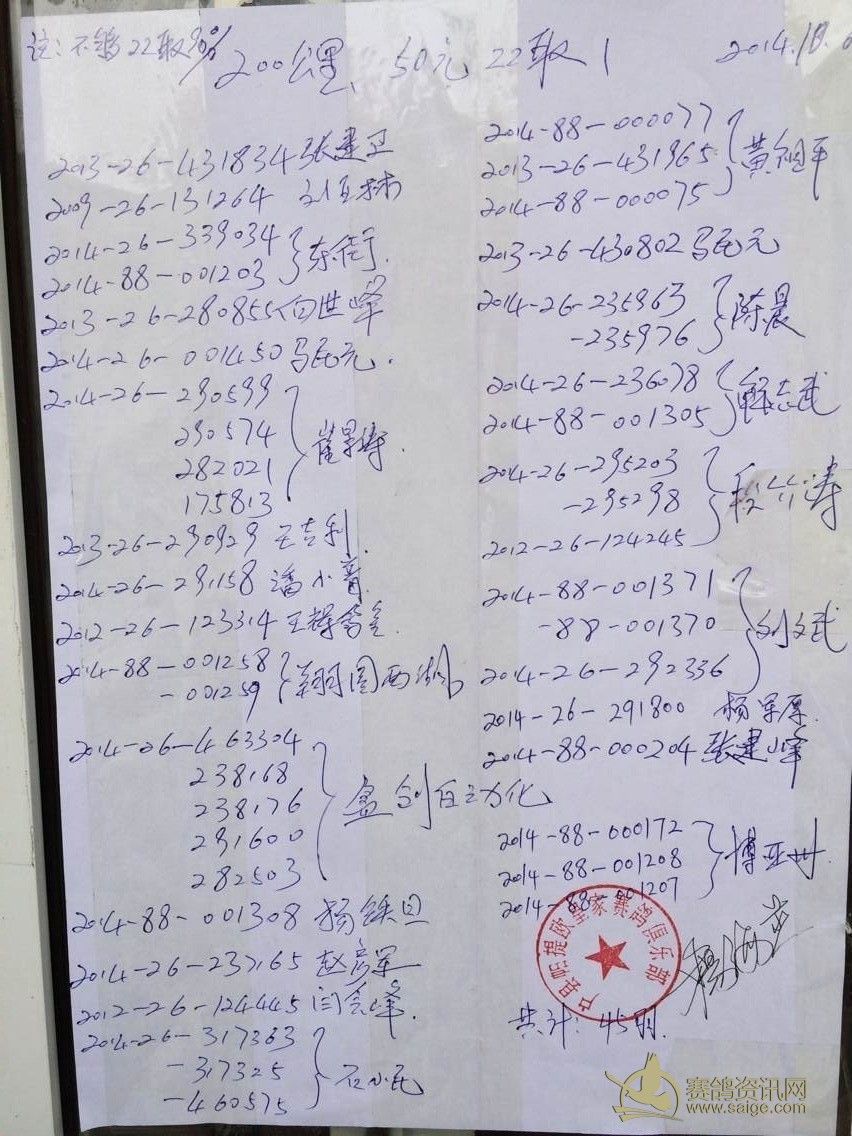 注：不够22取90%
200公里、50元 22取1
2014.10.6
2013-26-431834 张建卫
2009-26-131264
2014-26-339034
2014-88-001203 东街
2013-26-280855 向世峰
2014-26-001450 马民元
2014-26-290599
290574
282021
175813
2013-26-290929 王吉利
2014-26-291158 潘小育
2012-26-123314 王辉
2014-88-001258
-001259 翔园西湖
2014-26-463304
238168
238176
291600
282503 自动化
2014-88-001308 杨铁旦
2014-26-237165 赵彦军
2012-26-124445 闫会峰
2014-26-317363
-317325
-460575 石小民
2014-88-000077
2013-26-431965 黄
2014-88-000075
2013-26-430802 马民元
2014-26-235963
-235976 陈晨
2014-26-236078
2014-88-001305 解志武
2014-26-295203
-295298 涛
2012-26-124245
2014-88-001371
-88-001370 刘文武
2014-26-292336
2014-26-291800 杨军厚
2014-88-000204 张建峰
2014-88-000172
2014-88-001208 博亚州
2014-88-001207
户县凯提欧皇家赛鸽俱乐部
共计：45羽
赛鸽资讯网
www.saige.com